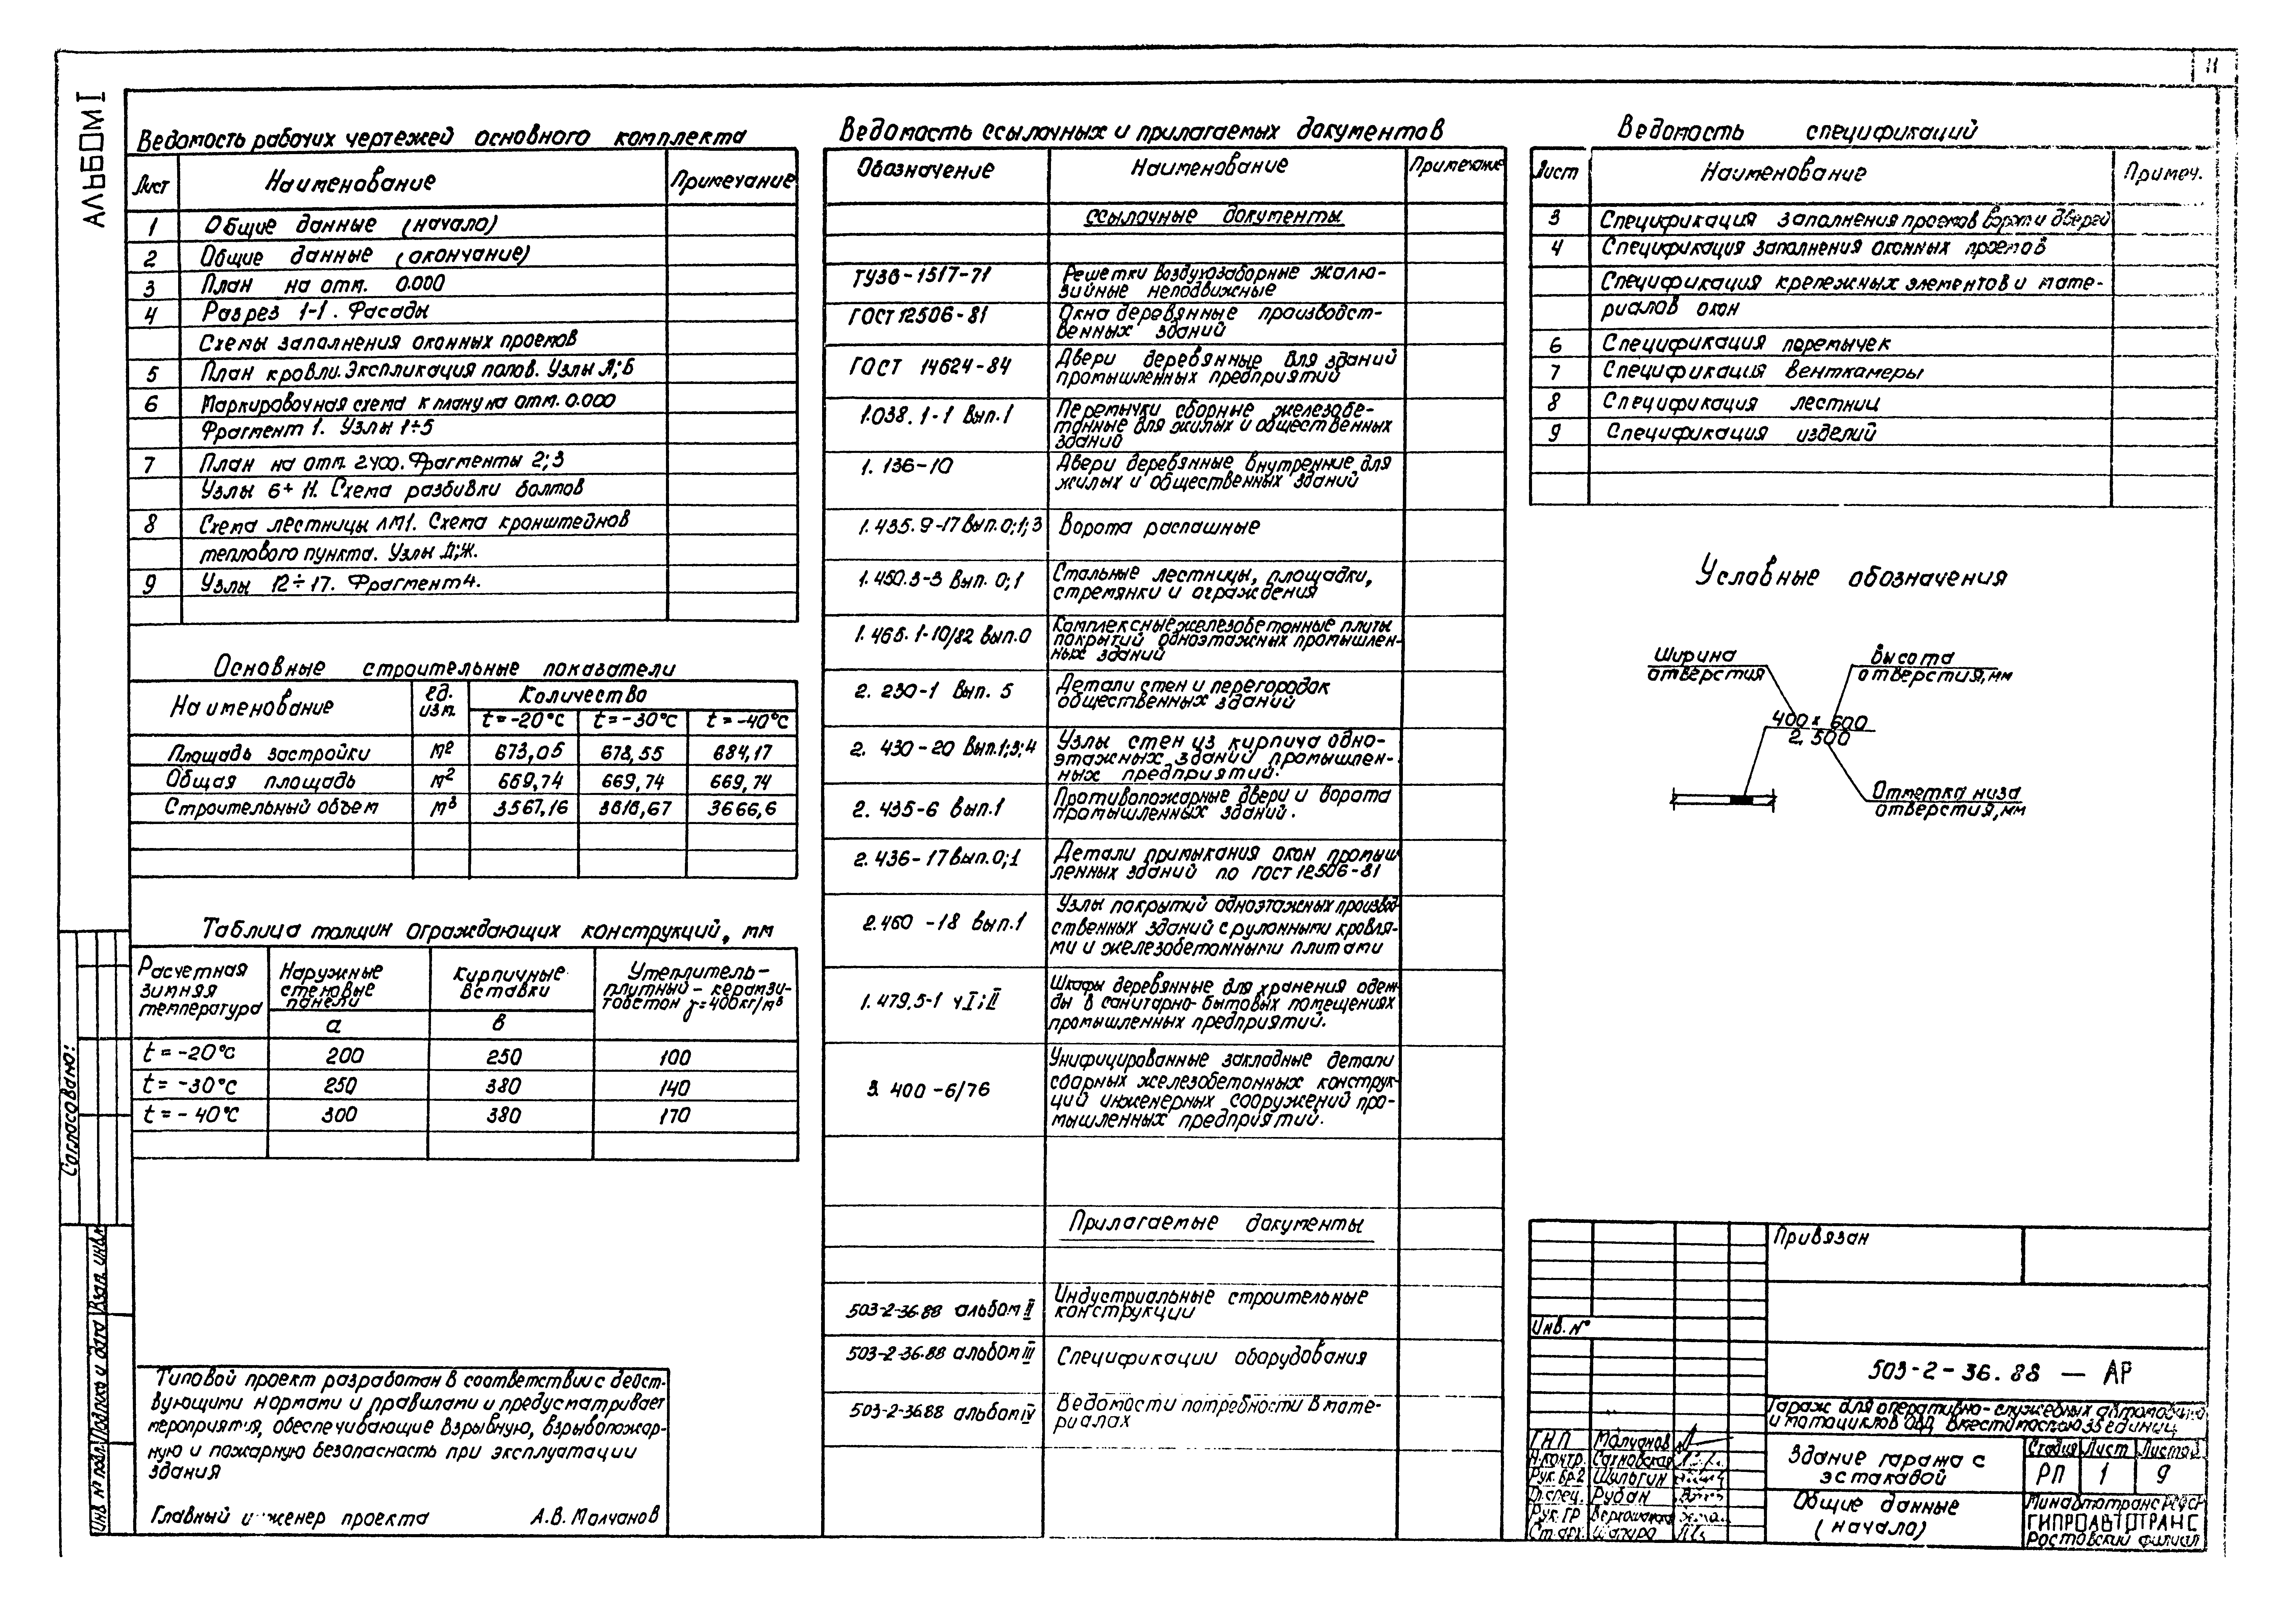 11
АЛЬБОМ I
Ведомость рабочих чертежей основного комплекта
Лист Наименование Примечание
1 Общие данные (начало)
2 Общие данные (окончание)
3 План на отм. 0.000
4 Разрез 1-1. Фасады
Схемы заполнения оконных проемов
5 План кровли. Экспликация полов. Узлы А;Б
6 Маркировочная схема к плану на отм. 0.000
Фрагмент 1. Узлы 1÷5
7 План на отм. 2400. Фрагменты 2;3
Узлы 6÷11. Схема разбивки болтов
8 Схема лестницы ЛМ1. Схема кронштейнов
теплового пункта. Узлы Д;Ж.
9 Узлы 12÷17. Фрагмент 4.
Основные строительные показатели
Наименование ед. изм. Количество
t=-20°С t=-30°С t=-40°С
Площадь застройки м² 673,05 678,55 684,17
Общая площадь м² 669,74 669,74 669,74
Строительный объем м³ 3567,16 3616,67 3666,6
Таблица толщин ограждающих конструкций, мм
Расчетная зимняя температура
Наружные стеновые панели
Кирпичные вставки
Утеплитель-плитный-керамзитобетон γ=400кг/м³
а в
t=-20°С 200 250 100
t=-30°С 250 380 140
t=-40°С 300 380 170
Типовой проект разработан в соответствии с дейст-
вующими нормами и правилами и предусматривает
мероприятия, обеспечивающие взрывную, взрывопожар-
ную и пожарную безопасность при эксплуатации
здания
Главный инженер проекта А.В. Молчанов
Согласовано:
Взам. инв.№
Подпись и дата
Инв. № подл.
Ведомость ссылочных и прилагаемых документов
Обозначение Наименование Примечание
Ссылочные документы
ТУ36-1517-71 Решетки воздухозаборные жалю-
зийные неподвижные
ГОСТ 12506-81 Окна деревянные производст-
венных зданий
ГОСТ 14624-84 Двери деревянные для зданий
промышленных предприятий
1.038.1-1 Вып.1 Перемычки сборные железобе-
тонные для жилых и общественных
зданий
1.136-10 Двери деревянные внутренние для
жилых и общественных зданий
1.435.9-17 Вып.0;1;3 Ворота распашные
1.450.3-3 Вып. 0;1 Стальные лестницы, площадки,
стремянки и ограждения
1.465.1-10/82 Вып.0 Комплексные железобетонные плиты
покрытий одноэтажных промышлен-
ных зданий
2.230-1 Вып. 5 Детали стен и перегородок
общественных зданий
2.430-20 Вып.1;3;4 Узлы стен из кирпича одно-
этажных зданий промышлен-
ных предприятий.
2.435-6 Вып.1 Противопожарные двери и ворота
промышленных зданий.
2.436-17 Вып.0;1 Детали примыкания окон промыш
ленных зданий по ГОСТ 12506-81
2.460-18 Вып.1 Узлы покрытий одноэтажных производ
ственных зданий с рулонными кровля-
ми и железобетонными плитами
1.479,5-1 ч I;II Шкафы деревянные для хранения одеж
ды в санитарно-бытовых помещениях
промышленных предприятий.
3.400-6/76 Унифицированные закладные детали
сборных железобетонных конструк-
ций инженерных сооружений про-
мышленных предприятий.
Прилагаемые документы
503-2-36.88 альбом II Индустриальные строительные
конструкции
503-2-36.88 альбом III Спецификации оборудования
503-2-36.88 альбом IV Ведомости потребности в мате-
риалах
Ведомость спецификаций
Лист Наименование Примеч.
3 Спецификация заполнения проемов ворот и дверей
4 Спецификация заполнения оконных проемов
Спецификация крепежных элементов и мате-
риалов окон
6 Спецификация перемычек
7 Спецификация венткамеры
8 Спецификация лестниц
9 Спецификация изделий
Условные обозначения
Ширина отверстия
Высота отверстия, мм
400 х 600
2.500
Отметка низа
отверстия, мм
Привязан
Инв. №
503-2-36.88 — АР
Гараж для оперативно-служебных автомобилей
и мотоциклов ОВД вместимостью 33 единиц
ГИП Молчанов
Н.контр. Сагновская
Рук. бр.2 Шульгин
Гл.спец. Рудан
Рук. гр
Ст. арх. Шапиро
Здание гаража с
эстакадой
Стадия Лист Листов
РП 1 9
Общие данные
(начало)
Минавтотранс РСФСР
ГИПРОАВТОТРАНС
Ростовский филиал